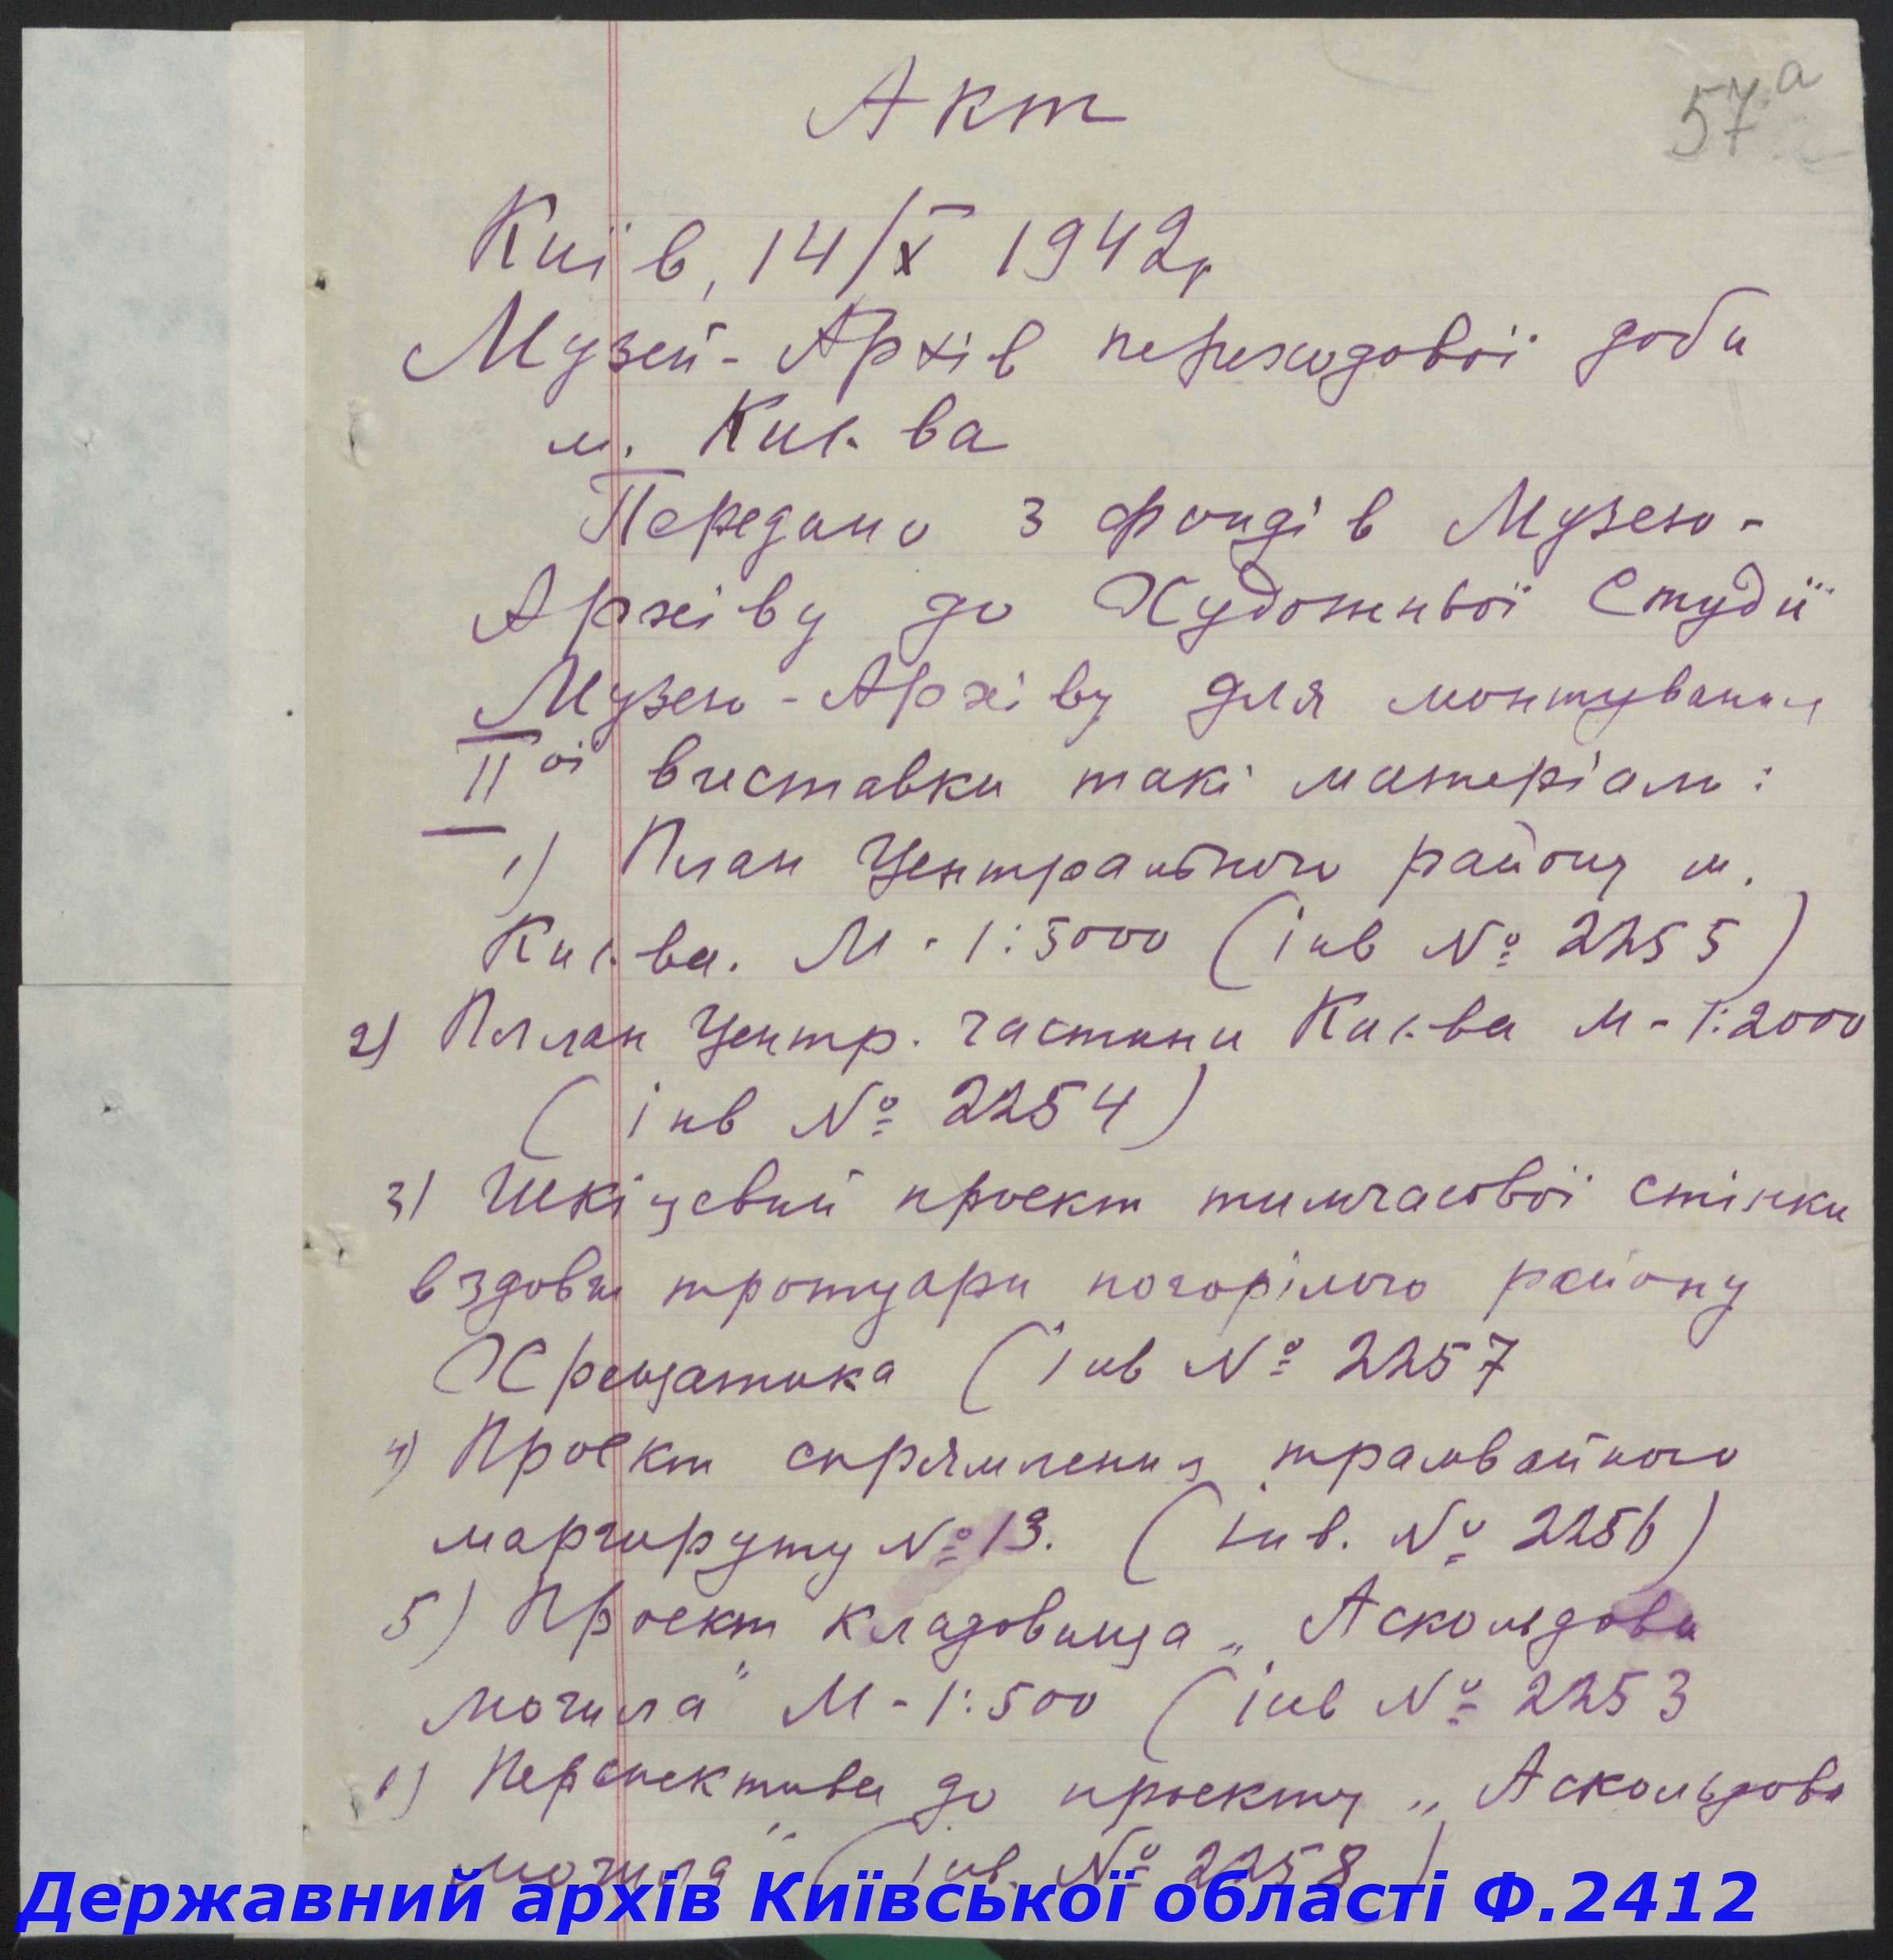 Акт
57а
Київ, 14/X 1942р
Музей-Архів переходової доби
м. Києва
Передано з фондів Музею-
Архіву до Художньої Студії
Музею-Архіву для монтування
IIої виставки такі матеріали:
1) План Центрального району м.
Києва. М-1:5000 (інв № 2255)
2) Пллан Центр. частини Києва М-1:2000
(інв № 2254)
3) Шкіцевий проект тимчасової стінки
вздовж тротуари погорілого району
Хрещатика (інв № 2257
4) Проект спрямлення трамвайного
маршруту № 13. (інв. № 2256)
5) Проект кладовища „Аскольдова
могила" М-1:500 (інв № 2253
6) Перспектива до проекту „Аскольдова
могила" (інв. № 2258)
Державний архів Київської області Ф.2412